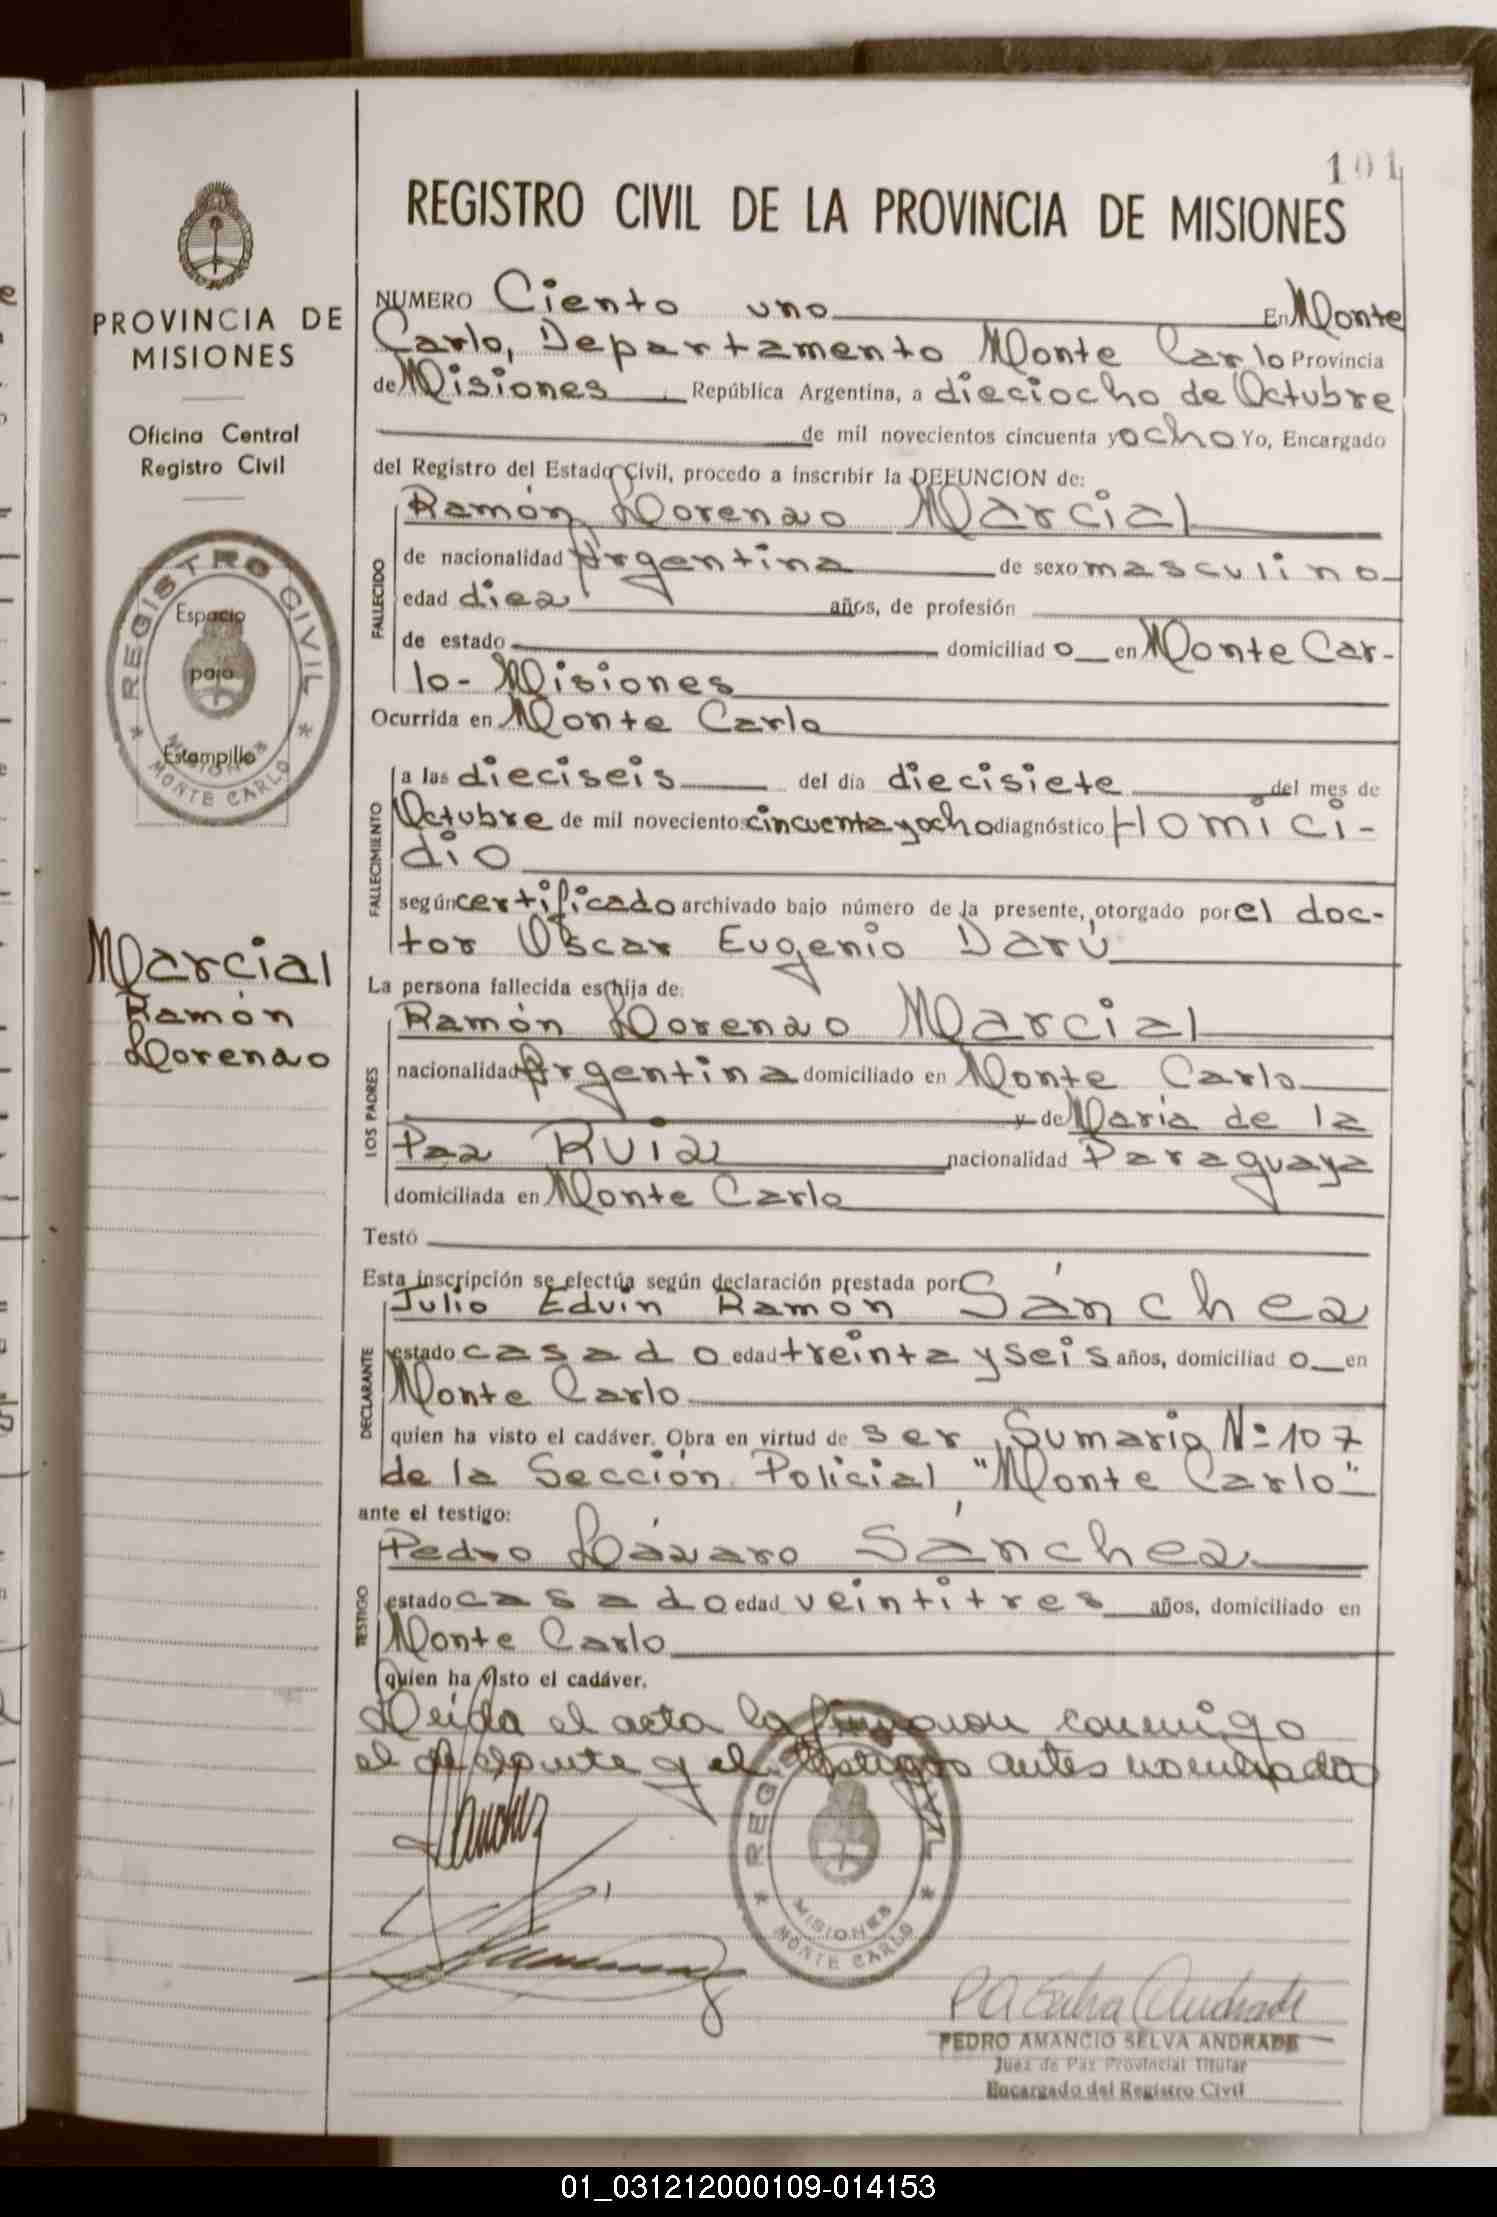 101
REGISTRO CIVIL DE LA PROVINCIA DE MISIONES
PROVINCIA DE
MISIONES
Oficina Central
Registro Civil
REGISTRO CIVIL
Espacio
para
Estampilla
MISIONES
MONTE CARLO
Marcial
Ramón
Lorenzo
NUMERO Ciento uno En Monte
Carlo, Departamento Monte Carlo Provincia
de Misiones República Argentina, a dieciocho de Octubre
de mil novecientos cincuenta y ocho Yo, Encargado
del Registro del Estado Civil, procedo a inscribir la DEFUNCION de:
FALLECIDO
Ramón Lorenzo Marcial
de nacionalidad Argentina de sexo masculino
edad diez años, de profesión
de estado domiciliad o en Monte Car-
lo - Misiones
Ocurrida en Monte Carlo
FALLECIMIENTO
a las dieciseis del día diecisiete del mes de
Octubre de mil novecientos cincuenta y ocho diagnóstico Homici-
dio
según certificado archivado bajo número de la presente, otorgado por el doc-
tor Oscar Eugenio Darú
La persona fallecida es hija de:
LOS PADRES
Ramón Lorenzo Marcial
nacionalidad Argentina domiciliado en Monte Carlo
y de María de la
Paz Ruiz nacionalidad Paraguaya
domiciliada en Monte Carlo
Testó
Esta inscripción se efectúa según declaración prestada por
DECLARANTE
Julio Edvin Ramon Sánchez
estado casado edad treinta y seis años, domiciliad o en
Monte Carlo
quien ha visto el cadáver. Obra en virtud de ser Sumario Nº 107
de la Sección Policial "Monte Carlo"
ante el testigo:
TESTIGO
Pedro Lázaro Sánchez
estado casado edad veintitres años, domiciliado en
Monte Carlo
quien ha visto el cadáver.
Leída el acta la firmaron conmigo
el declarante y el testigo antes nombrado
Sanchez
REGISTRO CIVIL
MISIONES
MONTE CARLO
P A Selva Andrade
PEDRO AMANCIO SELVA ANDRADE
Juez de Paz Provincial Titular
Encargado del Registro Civil
01_031212000109-014153